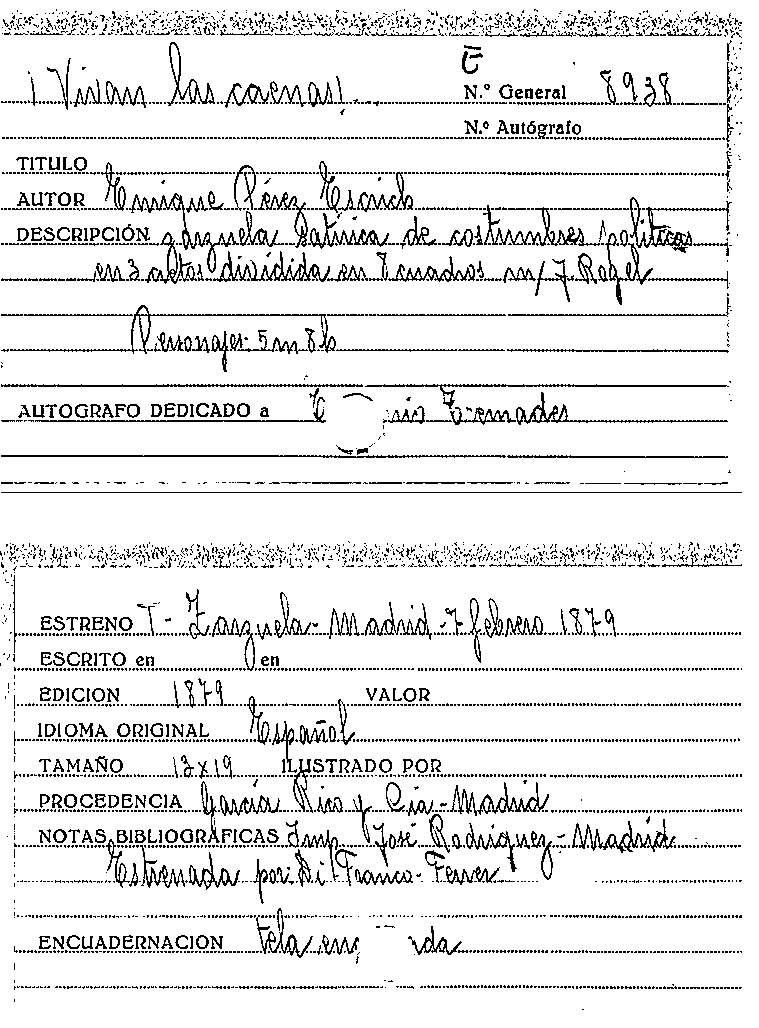 E
¡Vivan las caenas!...
N.º General 8938
N.º Autógrafo
TITULO
AUTOR Enrique Pérez Escrich
DESCRIPCIÓN zarzuela satírica de costumbres políticas
en 3 actos dividida en 8 cuadros m/ J. Rogel
Personajes: 5 m 8 h
AUTOGRAFO DEDICADO a
ESTRENO T- Zarzuela - Madrid - 7 febrero 1879
ESCRITO en en
EDICION 1879 VALOR
IDIOMA ORIGINAL Español
TAMAÑO 13x19 ILUSTRADO POR
PROCEDENCIA García Rico y Cía - Madrid
NOTAS BIBLIOGRAFICAS Imp. José Rodríguez - Madrid
Estrenada por Di Franco - Ferrer
ENCUADERNACION tela